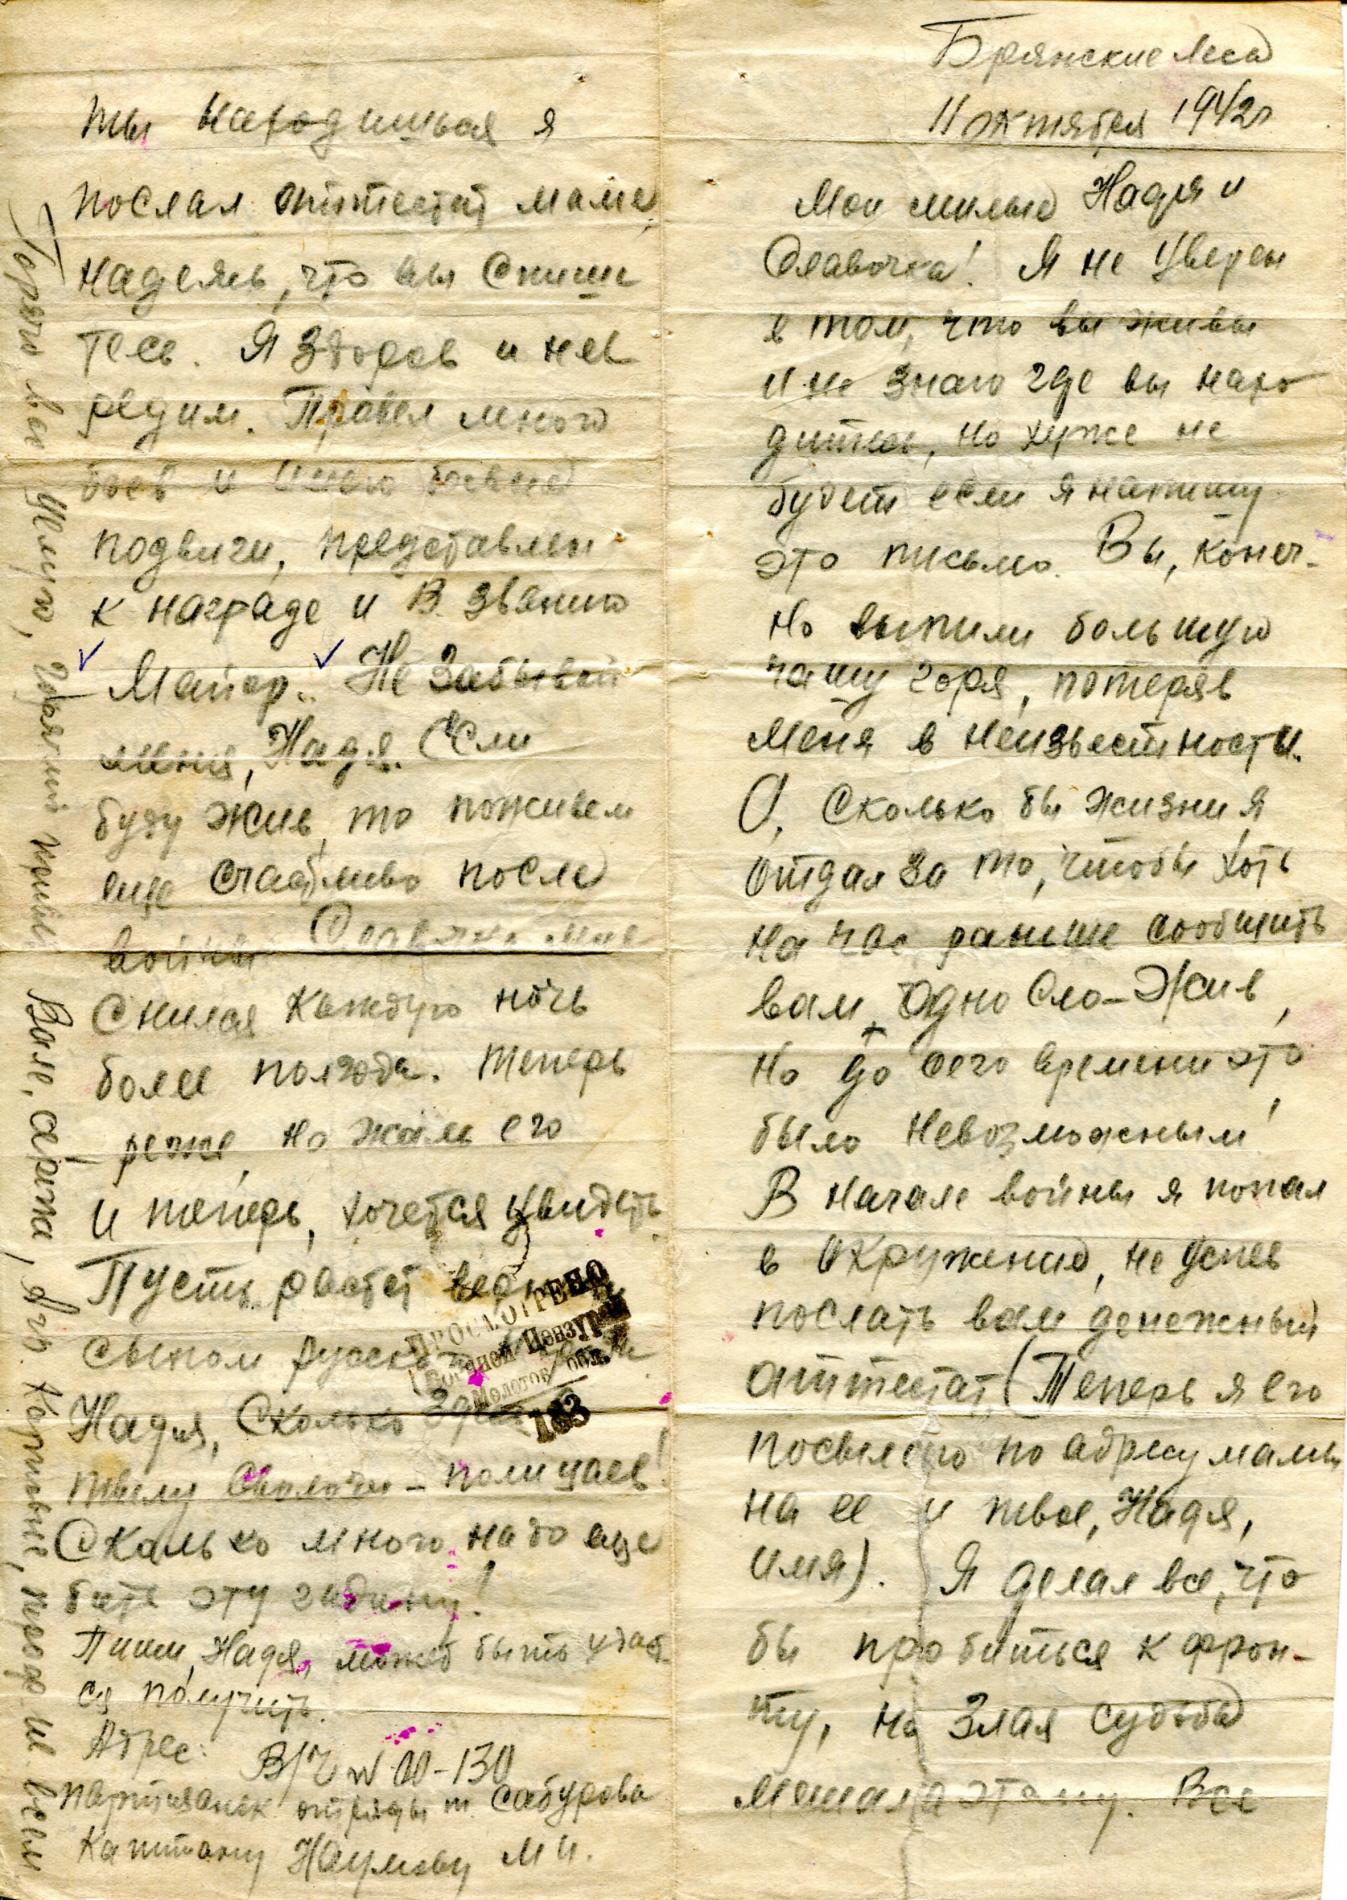 Брянские леса
11 октября 1942г
Мои милые Надя и
Славочка! Я не уверен
в том, что вы живы
и не знаю где вы нахо
дитесь, но хуже не
будет если я напишу
это письмо. Вы, конеч-
но выпили большую
чашу горя, потеряв
меня в неизвестности.
О, сколько бы жизни я
отдал за то, чтобы хоть
на час раньше сообщить
вам одно сло- Жив,
но до сего времени это
было невозможным!
В начале войны я попал
в окружение, не успев
послать вам денежный
аттестат (Теперь я его
посылаю по адресу мамы
на ее и твое, Надя,
имя). Я делал все, что
бы пробиться к фрон-
ту, но злая судьба
мешала этому. Все
ты находишься я
послал аттестат маме,
надеясь, что вы спише
тесь. Я здоров и нев
редим. Провел много
боев и имею боевые
подвиги, представлен
к награде и в званию
Майор. Не забывай
меня, Надя. Если
буду жив, то поживем
еще счастливо после
войны. Славочка мне
снился каждую ночь
более полгода. Теперь
реже, но жаль его
и теперь, хочется увидеть.
Пусть растет
сыном
Надя, сколько
тылу сволочи - полицаев!
Сколько много надо еще
бить эту гадину!
Пиши, Надя, может быть удаст
ся получить.
Адрес: В/Ч № 00-130
партизанск отряды т. Сабурова
Капитану Наумову М И.
ПРОСМОТРЕНО
Военной Цензурой
Молотов обл.
183
Горячо вас целую, горячий привет
Вале, всем